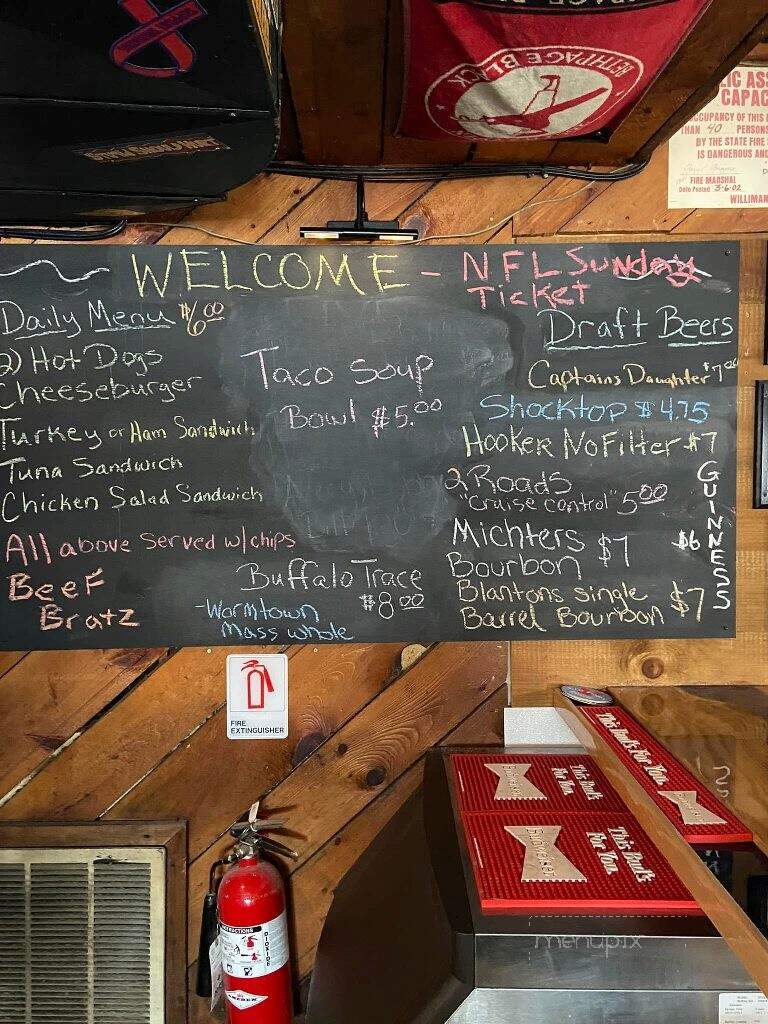 BETHPAGE BLACK
CAPAC
OCCUPANCY OF THIS
THAN 40 PERSONS
BY THE STATE FIRE
IS DANGEROUS AND
FIRE MARSHAL
Date Posted 3-6-02
WILLIMAN
WELCOME - NFL Sunday
Ticket
Daily Menu $6.00
2) Hot Dogs
Cheeseburger
Turkey or Ham Sandwich
Tuna Sandwich
Chicken Salad Sandwich
All above Served w/chips
Beef
Bratz
Taco Soup
Bowl $5.00
Buffalo Trace
$8.00
-Wormtown
Mass whole
Draft Beers
Captains Daughter $7.00
Shocktop $4.75
Hooker No Filter $7
2 Roads
"Cruise control" 5.00
Michters
Bourbon $7
Blantons single
Barrel Bourbon $7
GUINNESS
$6
FIRE
EXTINGUISHER
This Bud's For You.
Budweiser
This Bud's
For You.
Budweiser
This Bud's
For You.
Budweiser
INSTRUCTIONS
AMEREX
menupix